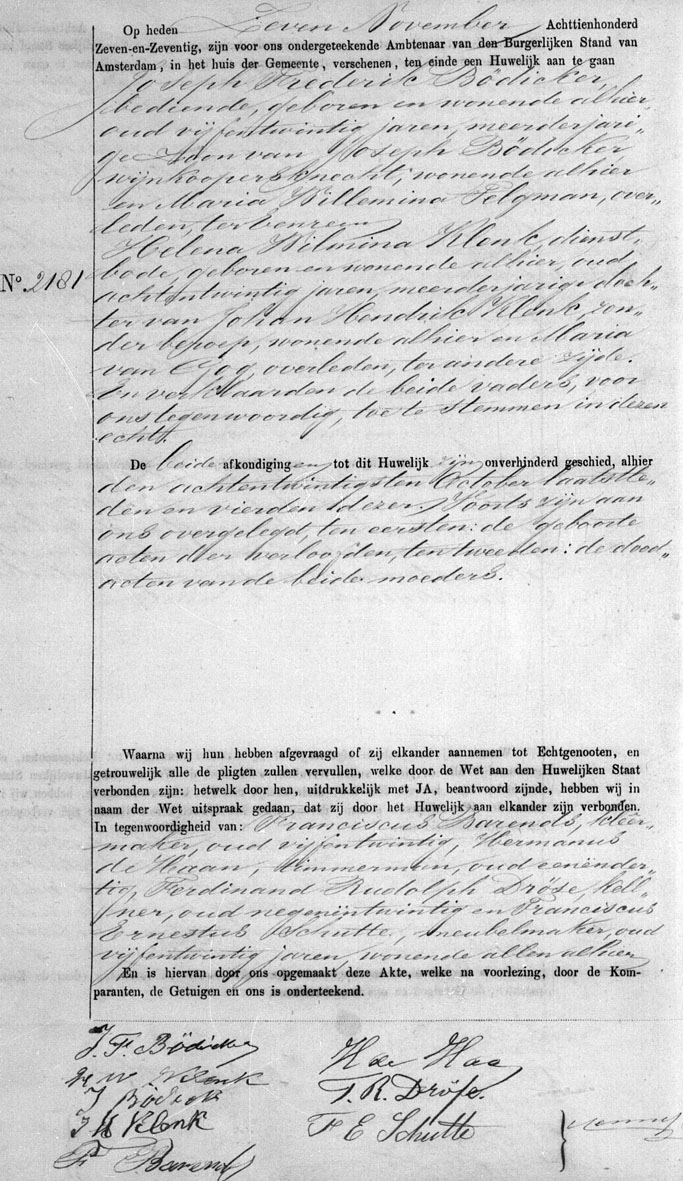 Op heden Zeven November Achttienhonderd
Zeven-en-Zeventig, zijn voor ons ondergeteekende Ambtenaar van den Burgerlijken Stand van
Amsterdam, in het huis der Gemeente, verschenen, ten einde een Huwelijk aan te gaan
Joseph Frederik Bödicker,
bediende, geboren en wonende alhier,
oud vijfentwintig jaren, meerderjari-
ge zoon van Joseph Bödicker,
wijnkoopersknecht, wonende alhier
en Maria Willemina Pelgman, over-
leden, ter eenre en
Helena Wilmina Klonk, dienst-
bode, geboren en wonende alhier, oud
No. 2181
achtentwintig jaren, meerderjarige doch-
ter van Johan Hendrik Klonk, zon-
der beroep, wonende alhier en Maria
van Gog, overleden, ter andere zijde.
En verklaarden de beide vaders, voor
ons tegenwoordig, toe te stemmen in dezen
echt.
De beide afkondigingen tot dit Huwelijk zijn onverhinderd geschied, alhier
den achtentwintigsten October laatstle-
den en vierden dezer. Voorts zijn aan
ons overgelegd, ten eersten: de geboorte
acten der verloofden, ten tweeden: de dood-
acten van de beide moeders.
Waarna wij hun hebben afgevraagd of zij elkander aannemen tot Echtgenooten, en
getrouwelijk alle de pligten zullen vervullen, welke door de Wet aan den Huwelijken Staat
verbonden zijn: hetwelk door hen, uitdrukkelijk met JA, beantwoord zijnde, hebben wij in
naam der Wet uitspraak gedaan, dat zij door het Huwelijk aan elkander zijn verbonden.
In tegenwoordigheid van: Franciscus Barends, kleer-
maker, oud vijfentwintig, Hermanus
de Haan, timmerman, oud eenender-
tig, Ferdinand Rudolph Dröse, kell-
ner, oud negenentwintig en Franciscus
Ernestus Schutte, meubelmaker, oud
vijfentwintig jaren, wonende allen alhier
En is hiervan door ons opgemaakt deze Akte, welke na voorlezing, door de Kom-
paranten, de Getuigen en ons is onderteekend.
J. F. Bödicker
H W Klonk
J Bödick
J H Klonk
F Barends
H de Haa
F. R. Dröse.
F E Schutte